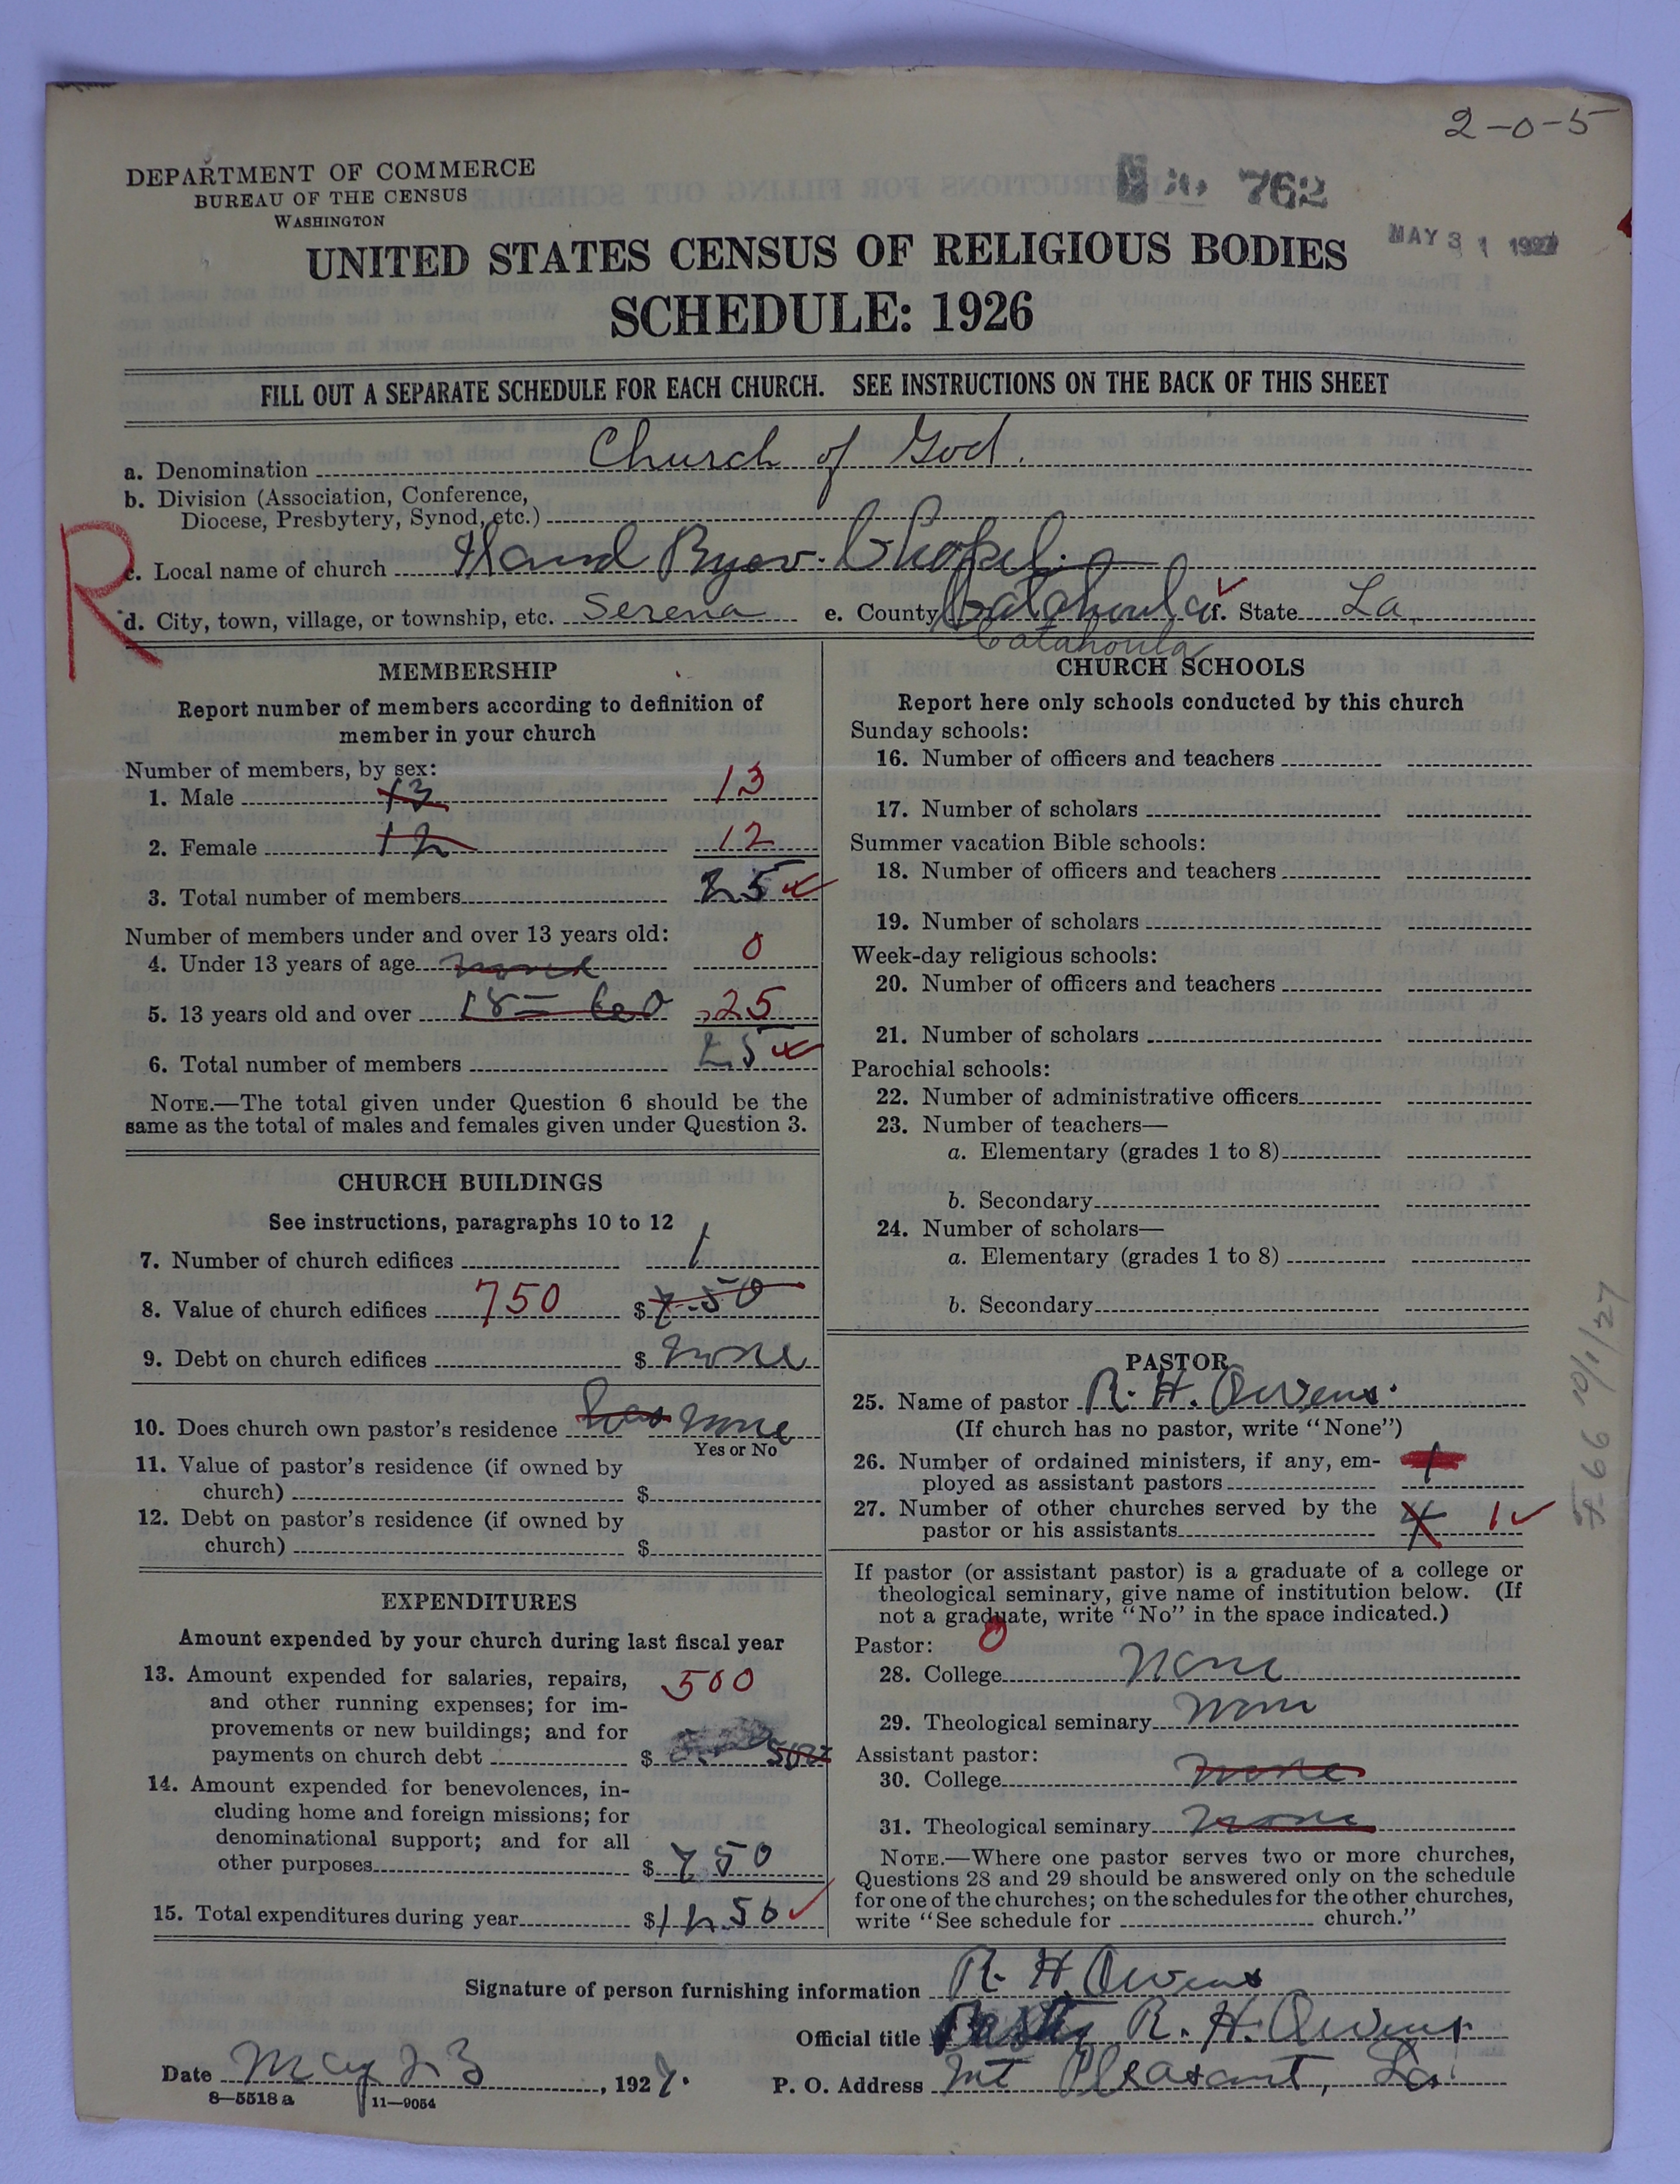 2-0-5
DEPARTMENT OF COMMERCE
BUREAU OF THE CENSUS
WASHINGTON
762
MAY 31 1927
UNITED STATES CENSUS OF RELIGIOUS BODIES
SCHEDULE: 1926
FILL OUT A SEPARATE SCHEDULE FOR EACH CHURCH. SEE INSTRUCTIONS ON THE BACK OF THIS SHEET
a. Denomination Church of God.
b. Division (Association, Conference,
Diocese, Presbytery, Synod, etc.)
R
c. Local name of church Chapel.
d. City, town, village, or township, etc. Serena e. County Catahoula f. State La.
Catahoula
MEMBERSHIP
Report number of members according to definition of
member in your church
Number of members, by sex:
1. Male 13 13
2. Female 12 12
3. Total number of members 25
Number of members under and over 13 years old:
4. Under 13 years of age none 0
5. 13 years old and over 18= 60 25
6. Total number of members 25
NOTE.—The total given under Question 6 should be the
same as the total of males and females given under Question 3.
CHURCH BUILDINGS
See instructions, paragraphs 10 to 12
7. Number of church edifices 1
8. Value of church edifices 750 $ 7.50
9. Debt on church edifices $ none
10. Does church own pastor's residence has none
Yes or No
11. Value of pastor's residence (if owned by
church) $
12. Debt on pastor's residence (if owned by
church) $
EXPENDITURES
Amount expended by your church during last fiscal year
13. Amount expended for salaries, repairs,
and other running expenses; for im-
provements or new buildings; and for
payments on church debt $ 500
14. Amount expended for benevolences, in-
cluding home and foreign missions; for
denominational support; and for all
other purposes $ 750
15. Total expenditures during year $ 1250
CHURCH SCHOOLS
Report here only schools conducted by this church
Sunday schools:
16. Number of officers and teachers
17. Number of scholars
Summer vacation Bible schools:
18. Number of officers and teachers
19. Number of scholars
Week-day religious schools:
20. Number of officers and teachers
21. Number of scholars
Parochial schools:
22. Number of administrative officers
23. Number of teachers—
a. Elementary (grades 1 to 8)
b. Secondary
24. Number of scholars—
a. Elementary (grades 1 to 8)
b. Secondary
PASTOR
25. Name of pastor R. H. Owens.
(If church has no pastor, write "None")
26. Number of ordained ministers, if any, em-
ployed as assistant pastors 1
27. Number of other churches served by the
pastor or his assistants 1
If pastor (or assistant pastor) is a graduate of a college or
theological seminary, give name of institution below. (If
not a graduate, write "No" in the space indicated.)
Pastor: 0
28. College none
29. Theological seminary none
Assistant pastor:
30. College none
31. Theological seminary none
NOTE.—Where one pastor serves two or more churches,
Questions 28 and 29 should be answered only on the schedule
for one of the churches; on the schedules for the other churches,
write "See schedule for church."
10/1/27
Signature of person furnishing information R. H. Owens
Official title Pastor R. H. Owens
Date May 23, 1927. P. O. Address Mt Pleasant, La.
8—5518 a 11—9054